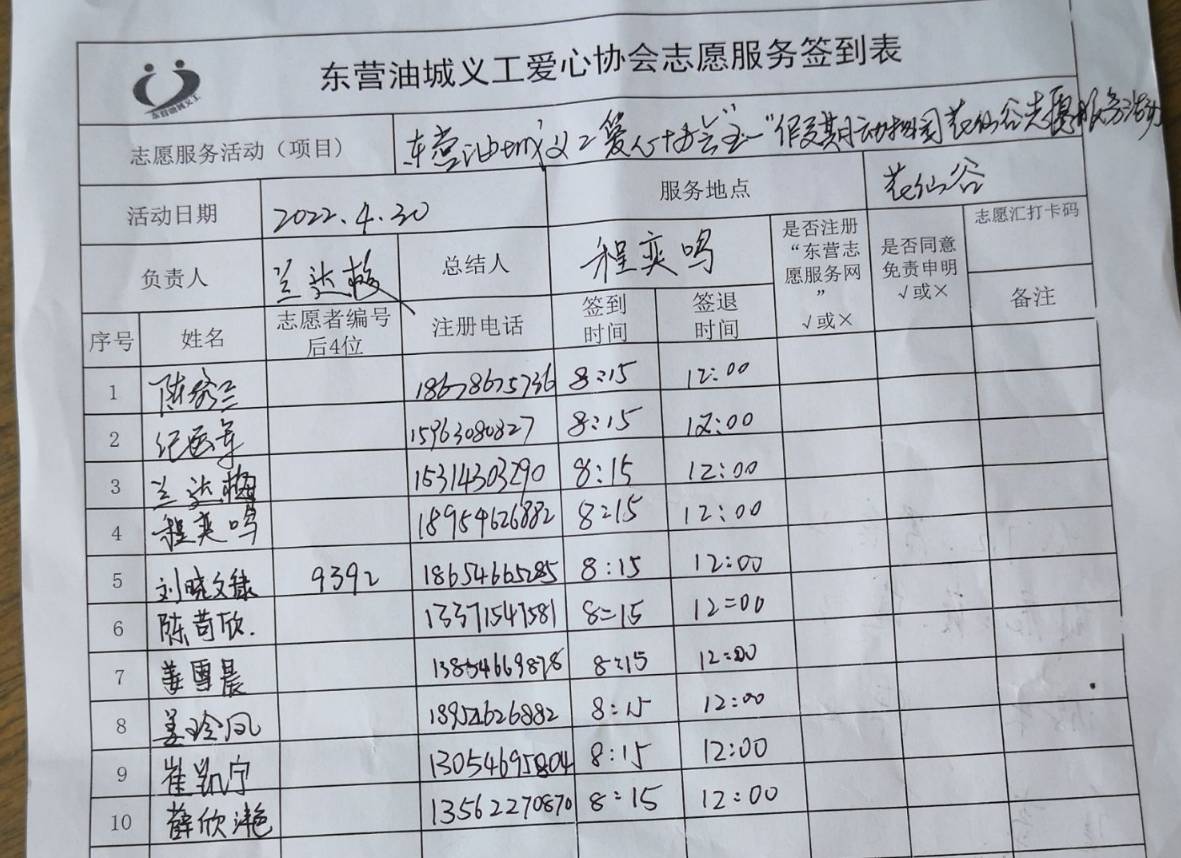 东营油城义工
东营油城义工爱心协会志愿服务签到表
志愿服务活动（项目） 东营油城义工爱心协会之"假期动物园花仙谷志愿服务活动
活动日期 2022.4.30 服务地点 花仙谷
负责人 兰达梅 总结人 程奕鸣 是否注册“东营志愿服务网” √或× 是否同意免责申明 √或× 志愿汇打卡码
序号 姓名 志愿者编号后4位 注册电话 签到时间 签退时间 备注
1 陈秀兰 18678675736 8:15 12:00
2 纪 15963080827 8:15 12:00
3 兰达梅 15314303290 8:15 12:00
4 程奕鸣 18954626882 8:15 12:00
5 刘晓文 9392 18654665285 8:15 12:00
6 陈苛欣. 13371547581 8:15 12:00
7 姜雪晨 13854669878 8:15 12:00
8 姜冷风 18954626882 8:15 12:00
9 崔凯宁 13054695804 8:15 12:00
10 薛欣滟 13562270870 8:15 12:00